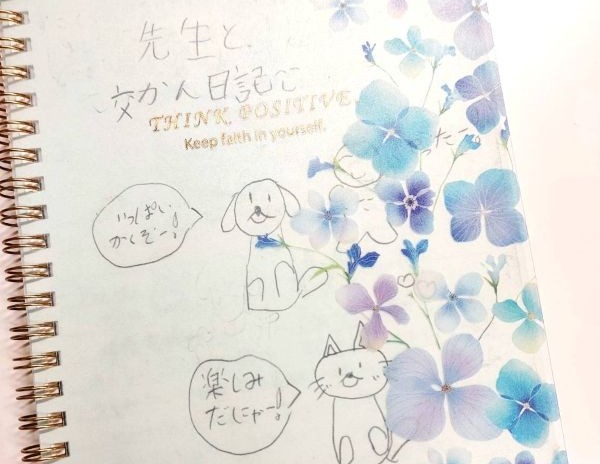 先生と、
交かん日記♡
THINK POSITIVE
Keep faith in yourself.
ったニ
いっぱい
かくぞー!
楽しみ
だにゃー!